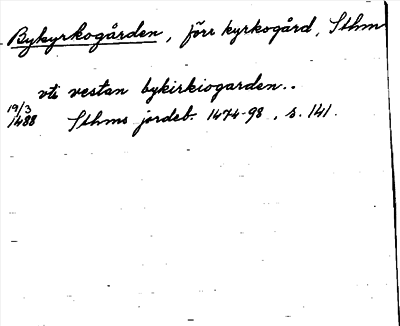 Bykyrkogården, förr kyrkogård, Sthm
vti vestan bykirkiogarden..
19/3
1488 Sthms jordeb. 1474-98, s. 141.